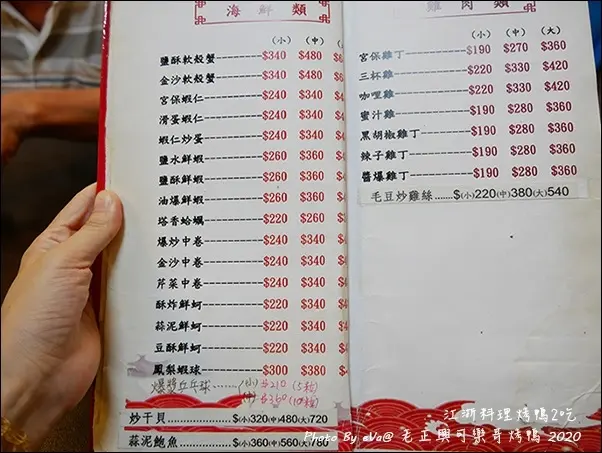 海鮮類
(小) (中)
鹽酥軟殼蟹 $340 $480
金沙軟殼蟹 $340 $480
宮保蝦仁 $240 $340
滑蛋蝦仁 $240 $340
蝦仁炒蛋 $240 $340
鹽水鮮蝦 $260 $360
鹽酥鮮蝦 $260 $360
油爆鮮蝦 $260 $360
塔香蛤蠣 $220 $260
爆炒中卷 $240 $340
金沙中卷 $240 $340
芹菜中卷 $240 $340
酥炸鮮蚵 $220 $340
蒜泥鮮蚵 $220 $340
豆酥鮮蚵 $220 $340
鳳梨蝦球 $300 $380
爆漿乒乓球 (小) $210 (5粒)
(中) $360 (10粒)
炒干貝 $(小)320(中)480(大)720
蒜泥鮑魚 $(小)360(中)560(大)780
雞肉類
(小) (中) (大)
宮保雞丁 $190 $270 $360
三杯雞 $220 $330 $420
咖哩雞 $220 $330 $420
蜜汁雞 $190 $280 $360
黑胡椒雞丁 $190 $280 $360
辣子雞丁 $190 $280 $360
醬爆雞丁 $190 $280 $360
毛豆炒雞絲 $(小)220(中)380(大)540
江浙料理烤鴨2吃
Photo By eVa@ 老正興可樂哥烤鴨 2020